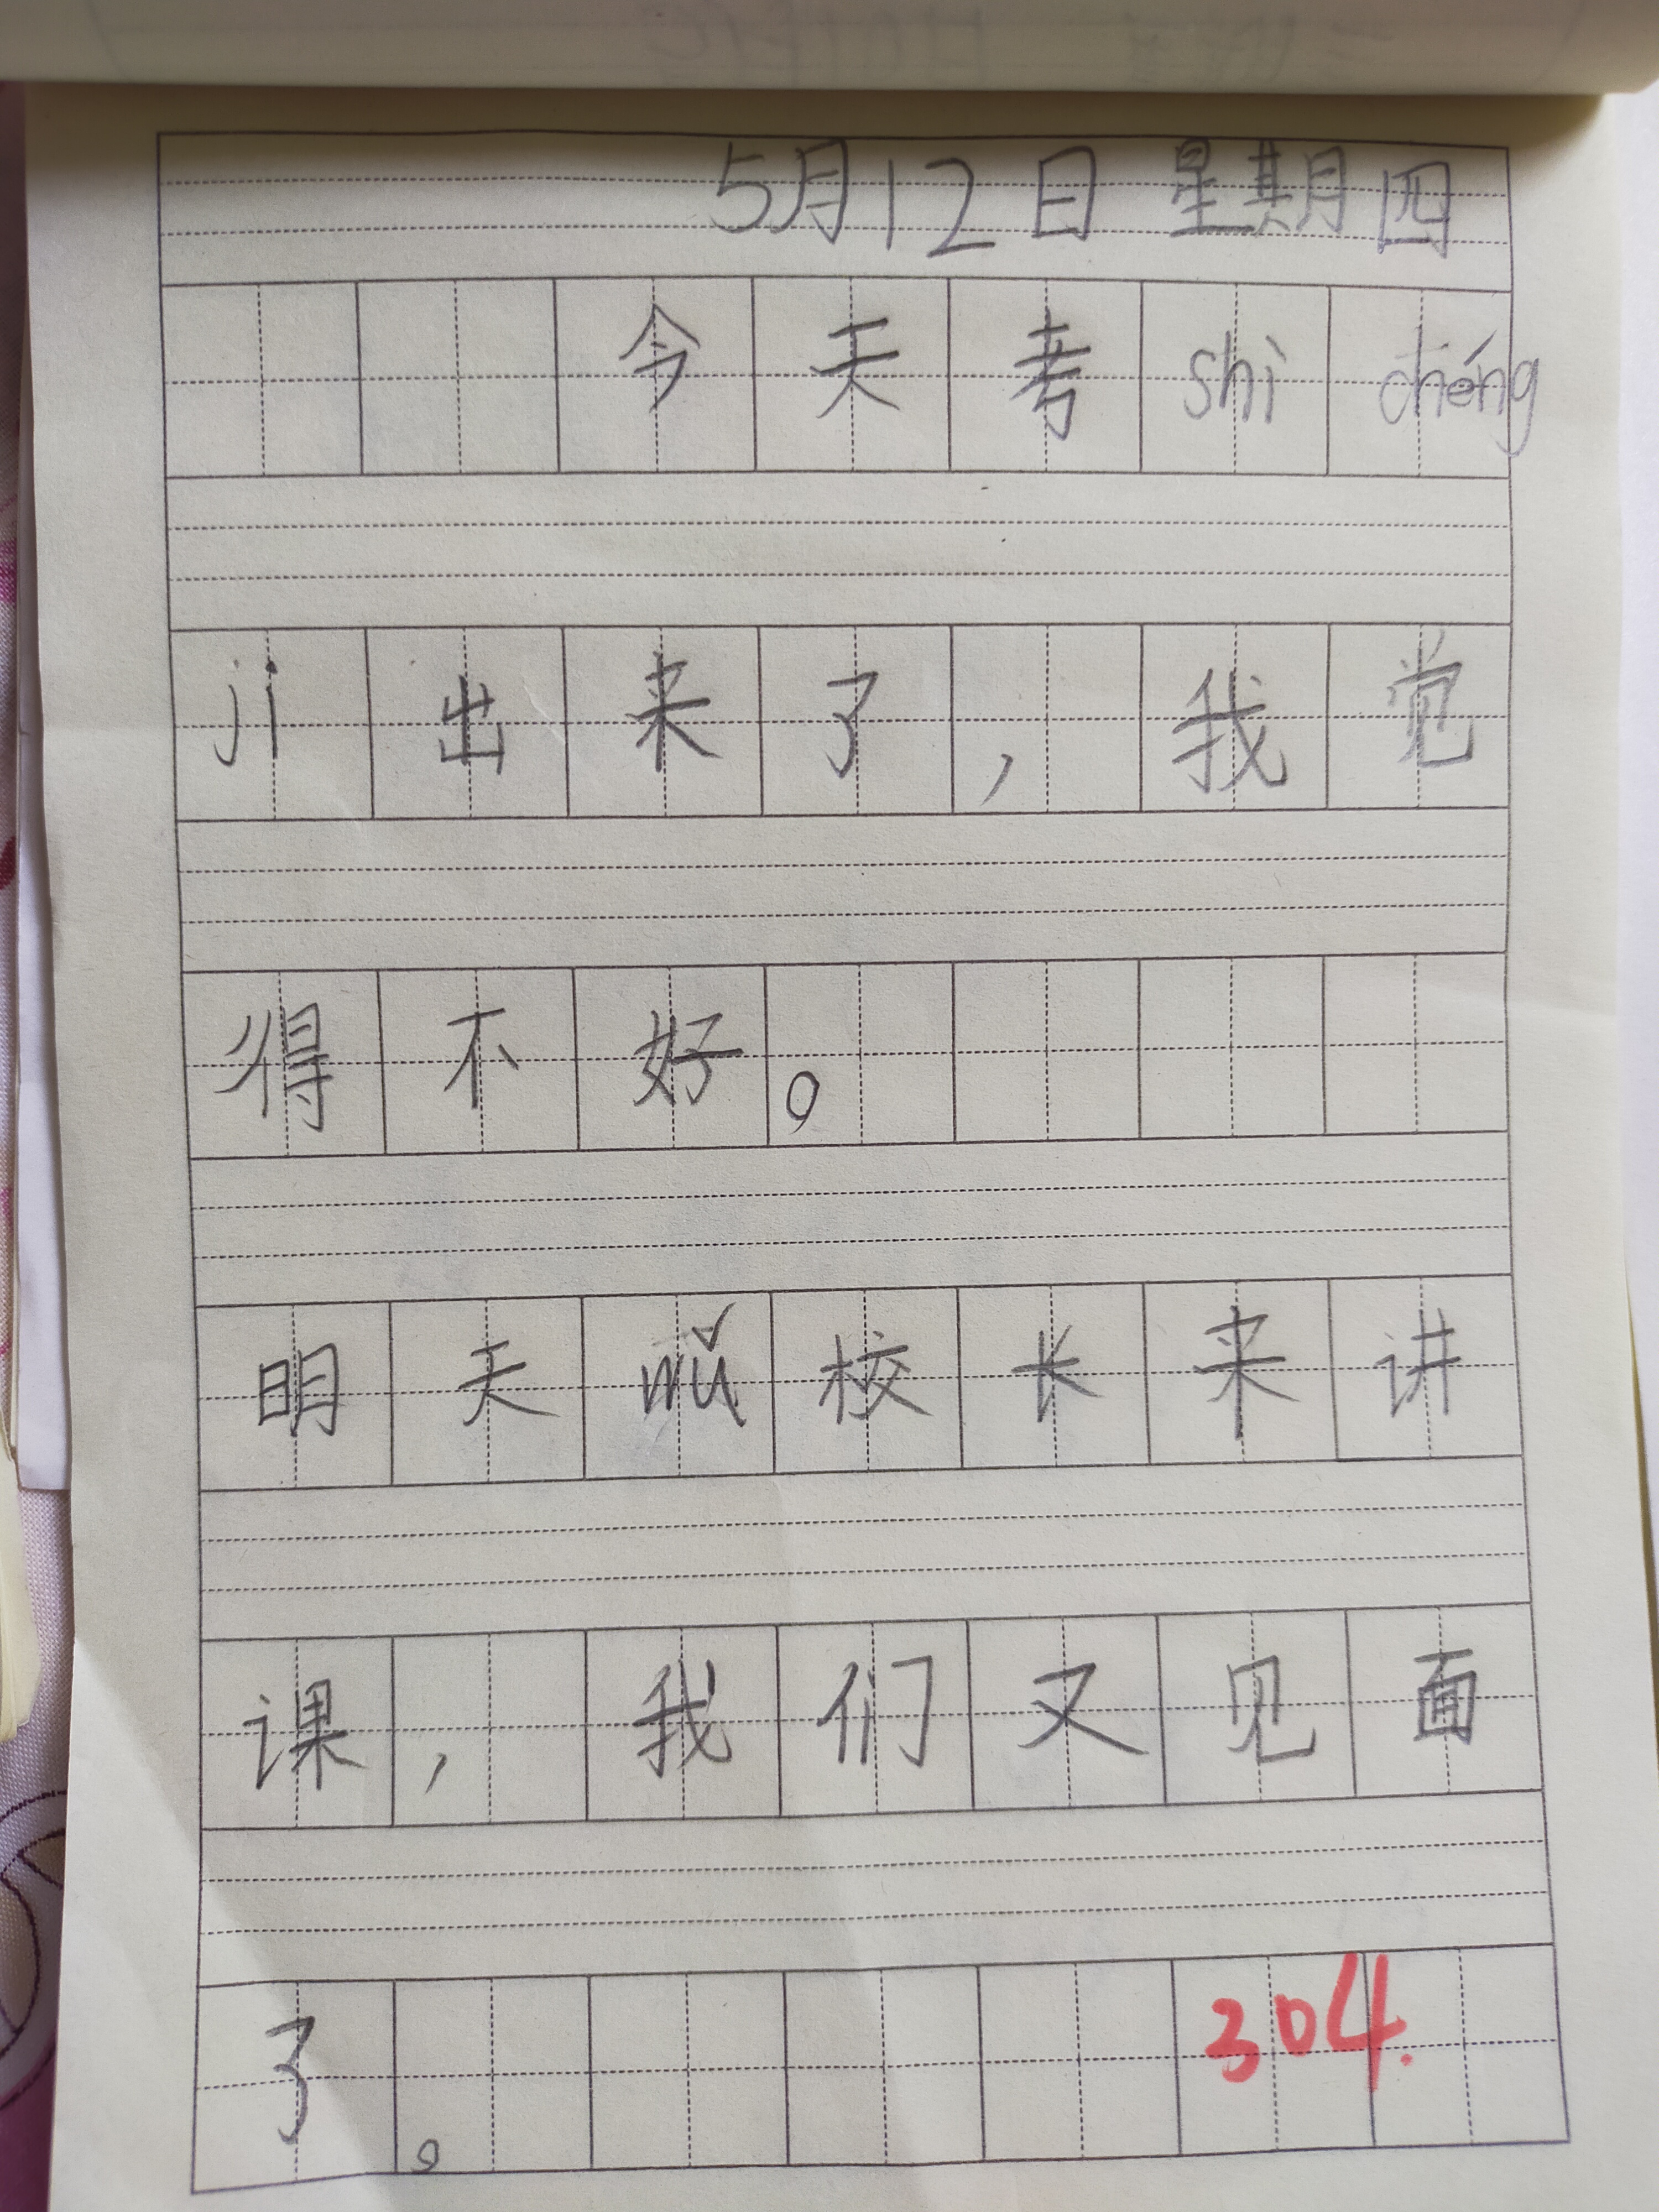 5月12日 星期四
今天考shìchéng
jì出来了，我觉
得不好。
明天nǚ校长来讲
课，我们又见面
了。
304.